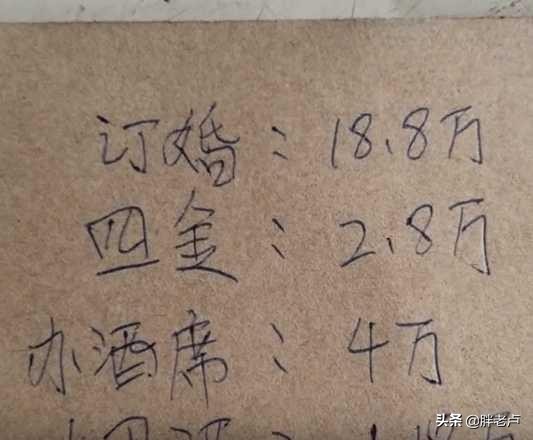 订婚：18.8万
四金：2.8万
办酒席：4万
头条 @胖老卢